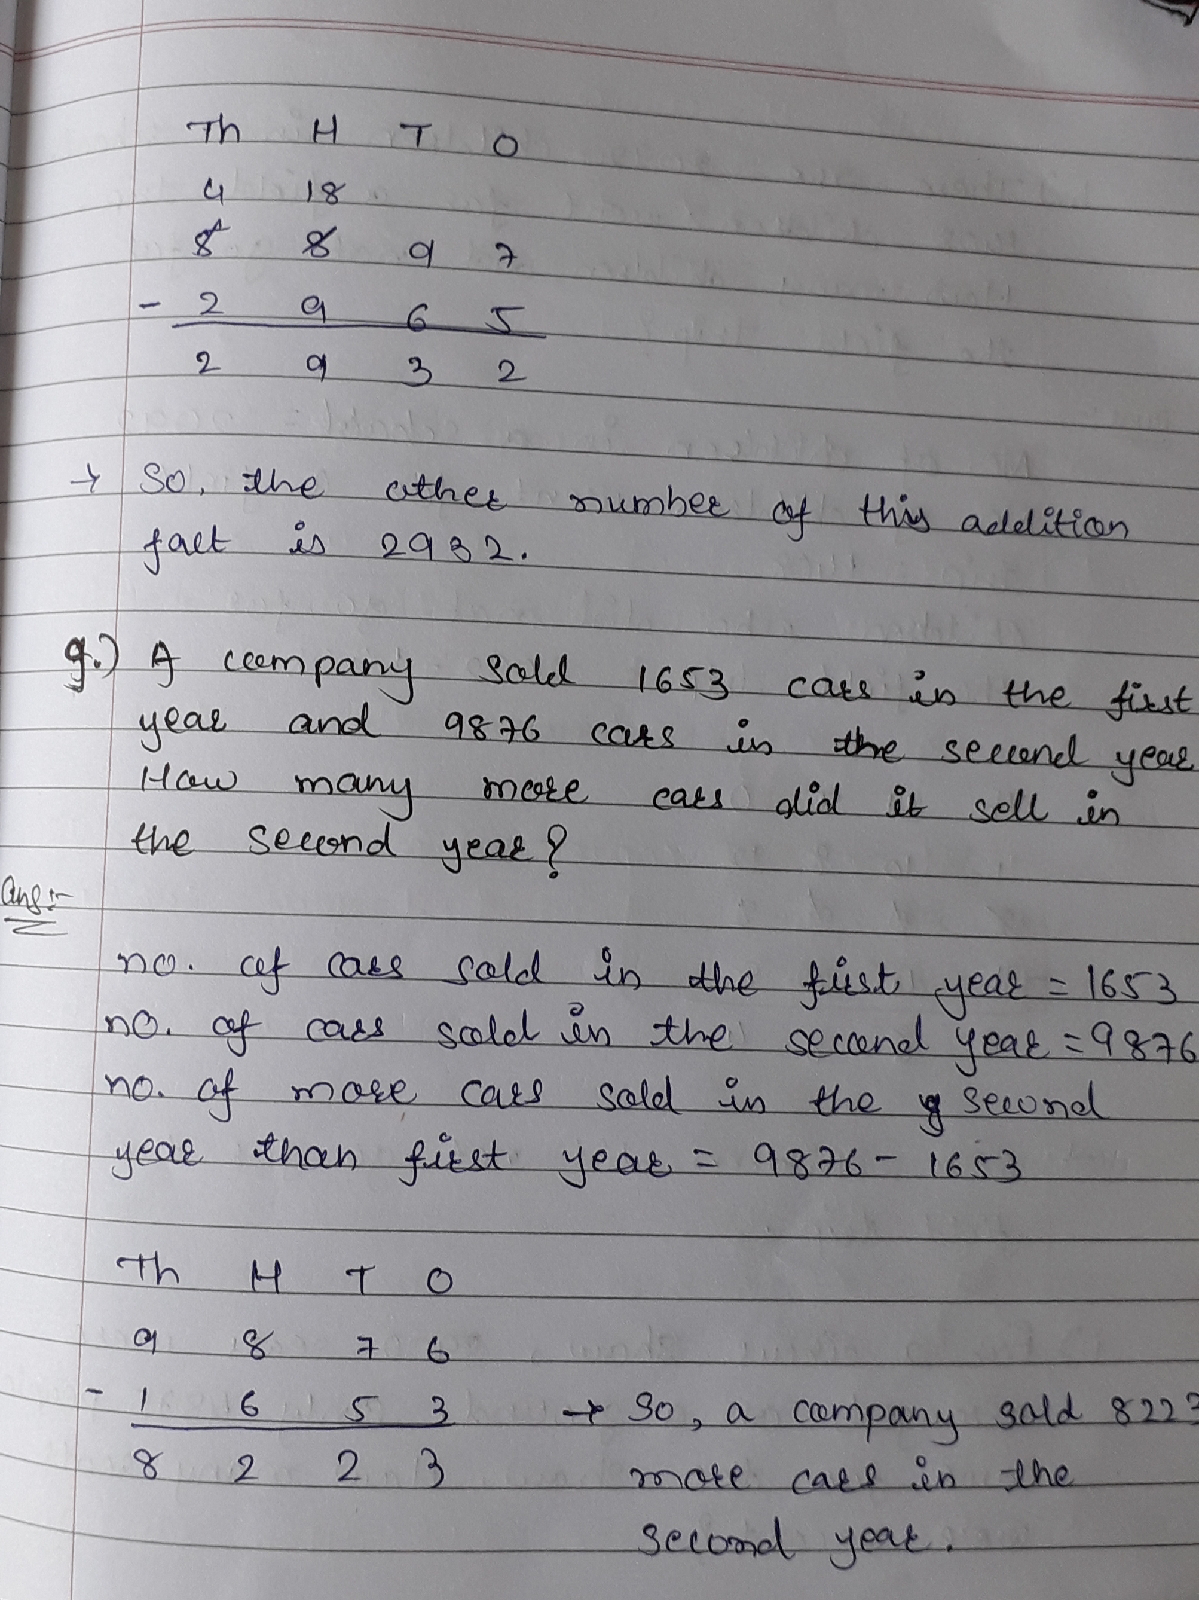 Th H T O
4 18
8 8 9 7
- 2 9 6 5
2 9 3 2
→ So, the other number of this addition
fact is 2932.
g.) A company sold 1653 cars in the first
year and 9876 cars in the second year
How many more cars did it sell in
the second year?
Ans:-
no. of cars sold in the first year = 1653
no. of cars sold in the second year = 9876
no. of more cars sold in the second
year than first year = 9876 - 1653
Th H T O
9 8 7 6
- 1 6 5 3
8 2 2 3
→ So, a company sold 8223
more cars in the
second year.